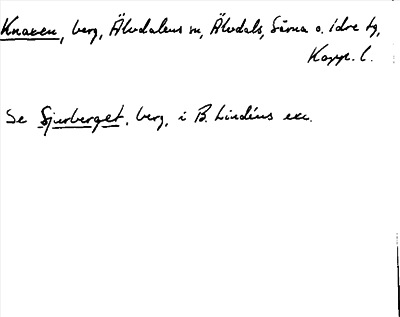 Knaven, berg, Älvdalens sn, Älvdals, Särna o. Idre tg,
Kopp. l.
Se Sjurberget, berg, i B. Lindéns exc.